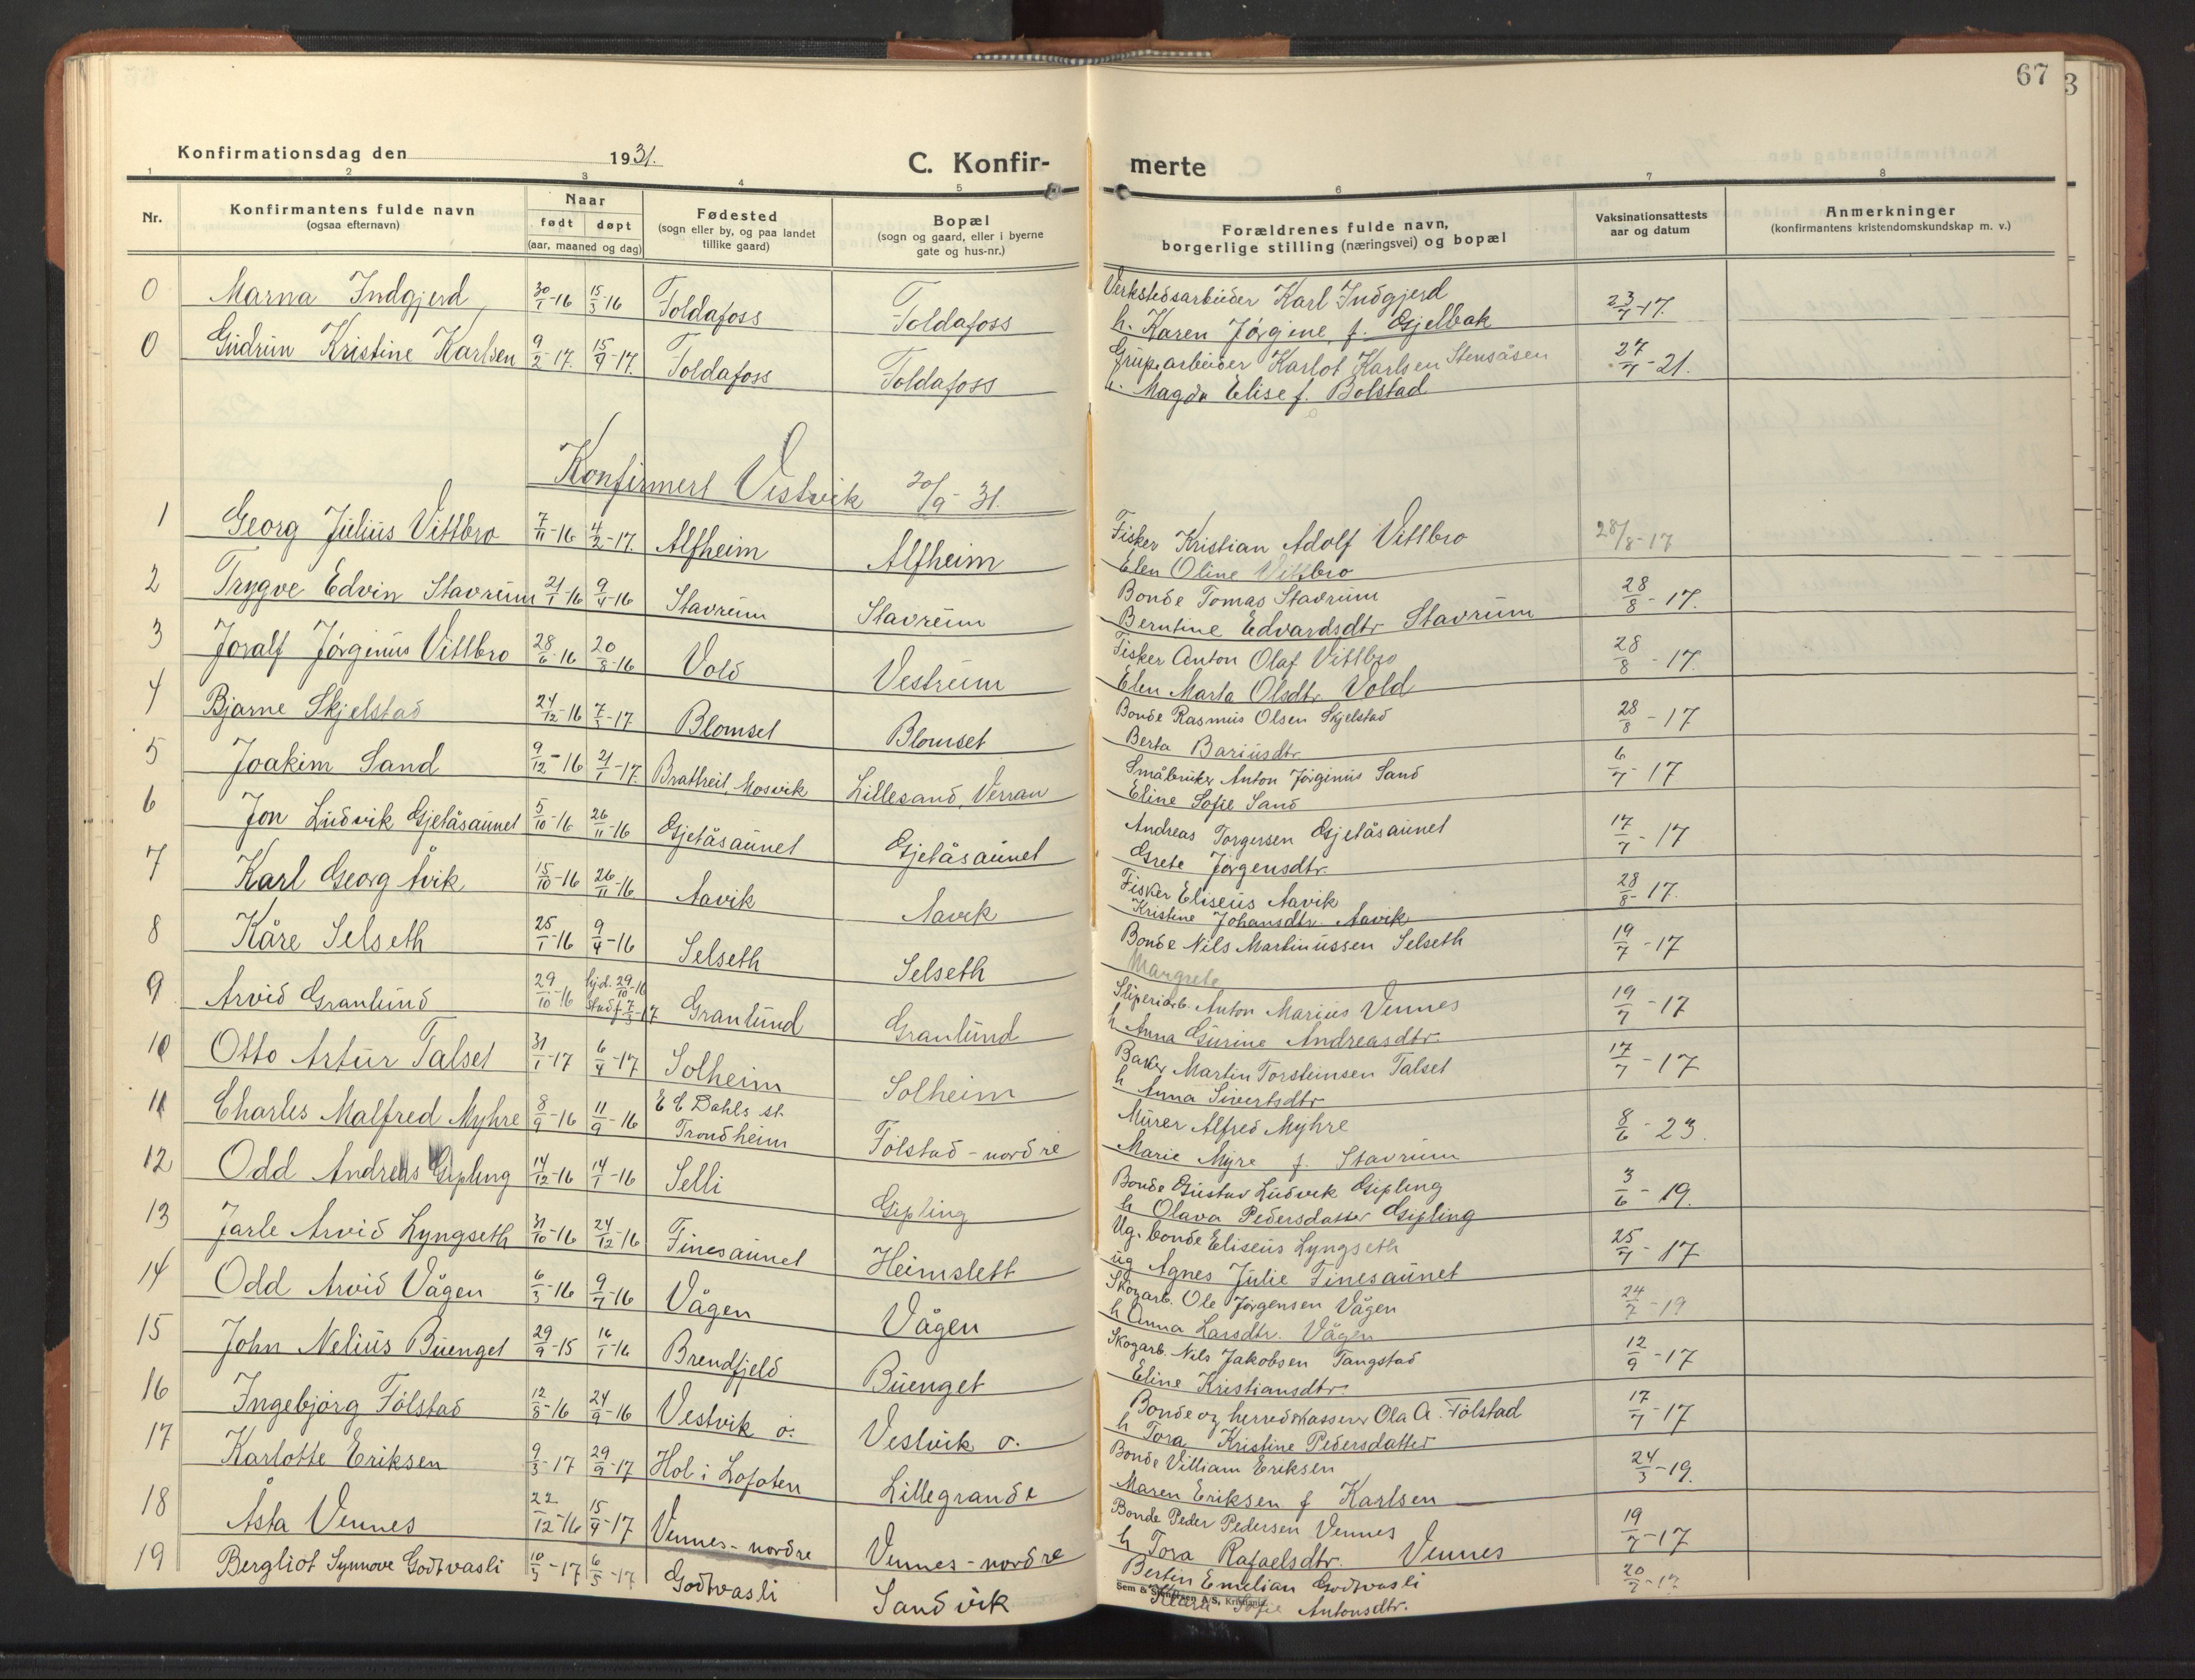 67
3
Konfirmationsdag den 1931.
C. Konfir-
merte
1 2 3 4 5 6 7 8
Nr.
Konfirmantens fulde navn
(ogsaa efternavn)
Naar
født døpt
(aar, maaned og dag)
Fødested
(sogn eller by, og paa landet
tillike gaard)
Bopæl
(sogn og gaard, eller i byerne
gate og hus-nr.)
Forældrenes fulde navn,
borgerlige stilling (næringsvei) og bopæl
Vaksinationsattests
aar og datum
Anmerkninger
(konfirmantens kristendomskundskap m. v.)
0 Marna Indgjerd 30/1-16 15/3-16 Foldafoss Foldafoss Verkstedsarbeider Karl Indgjerd 23/7-17.
h. Karen Jørgine f. Gjelbak
0 Gudrun Kristine Karlsen 9/2-17. 15/9-17. Foldafoss Foldafoss Grubearbeider Karlot Karlsen Stensåsen 27/7-21.
h. Magda Elise f. Bolstad
Konfirmert Vestvik 20/9-31.
1 Georg Julius Vittbro 7/11-16 4/2-17. Alfheim Alfheim Fisker Kristian Adolf Vittbro 28/8-17
Elen Oline Vittbro
2 Trygve Edvin Stavrum 21/1-16 9/4-16 Stavrum Stavrum Bonde Tomas Stavrum 28/8-17.
Berntine Edvardsdtr Stavrum
3 Joralf Jørginus Vittbro 28/6-16 20/8-16 Vold Vestrum Fisker Anton Olaf Vittbro 28/8-17.
Elen Marta Olsdtr. Vold
4 Bjarne Skjelstad 24/12-16 7/3-17. Blomset Blomset Bonde Rasmus Olsen Skjelstad 28/8-17
Berta Bariusdtr
5 Joakim Sand 9/12-16 21/1-17. Bratreit, Mosvik Lillesand, Verran Småbruker Anton Jørginus Sand 6/7-17
Eline Sofie Sand
6 Jon Ludvik Gjetåsaunet 5/10-16 26/11-16 Gjetåsaunet Gjetåsaunet Andreas Torgersen Gjetåsaunet 17/7-17
Grete Jørgensdtr.
7 Karl Georg Åvik 15/10-16 26/11-16 Aavik Aavik Fisker Eliseus Aavik 28/8-17.
Kristine Johansdtr. Aavik
8 Kåre Selseth 25/1-16 9/4-16 Selseth Selseth Bonde Nils Martinussen Selseth 19/7-17
Margrete
9 Arvid Granlund 29/10-16 hjd. 29/10-16 stadf 7/3-17 Granlund Granlund Sliperiarb. Anton Marius Vennes 19/7-17
h Anna Gurine Andreasdtr.
10 Otto Artur Talset 31/1-17 6/4-17 Solheim Solheim Baker Martin Torsteinsen Talset 17/7-17
h Anna Sivertsdtr
11 Charles Malfred Myhre 8/9-16 11/9-16 E C Dahls st. Trondheim Følstad-nordre Murer Alfred Myhre 8/6-23.
Marie Myre f. Stavrum
12 Odd Andreas Gipling 14/12-16 14/1-16 Selli Gipling Bonde Gustav Ludvik Gipling 3/6-19.
h Olava Pedersdatter Gipling
13 Jarle Arvid Lyngseth 31/10-16 24/12-16 Finesaunet Heimslett Ug. bonde Eliseus Lyngseth 25/7-17
ug Agnes Julie Finesaunet
14 Odd Arvid Vågen 6/3-16 9/7-16 Vågen Vågen Skogarb. Ole Jørgensen Vågen 24/7-19
h Anna Larsdtr. Vågen
15 John Nelius Buenget 29/9-15 16/1-16 Brendfjeld Buenget Skogarb. Nils Jakobsen Tangstad 12/9-17
Eline Kristiansdtr.
16 Ingebjørg Følstad 12/8-16 24/9-16 Vestvik ø. Vestvik ø. Bonde og herredskasserer Ola A. Følstad 17/7-17
h Tora Kristine Pedersdatter
17 Karlotte Eriksen 9/3-17 29/9-17 Hol i Lofoten Lillegrande Bonde Villiam Eriksen 24/3-19.
Maren Eriksen f Karlsen
18 Åsta Vennes 22/12-16 15/4-17 Vennes-nordre Vennes-nordre Bonde Peder Pedersen Vennes 19/7-17
h Tora Rafaelsdtr. Vennes
19 Bergliot Synnove Godtvasli 10/3-17 6/5-17 Godtvasli Sandvik Bertin Emelian Godtvasli 20/7-17
Klara Sofie Antonsdtr.